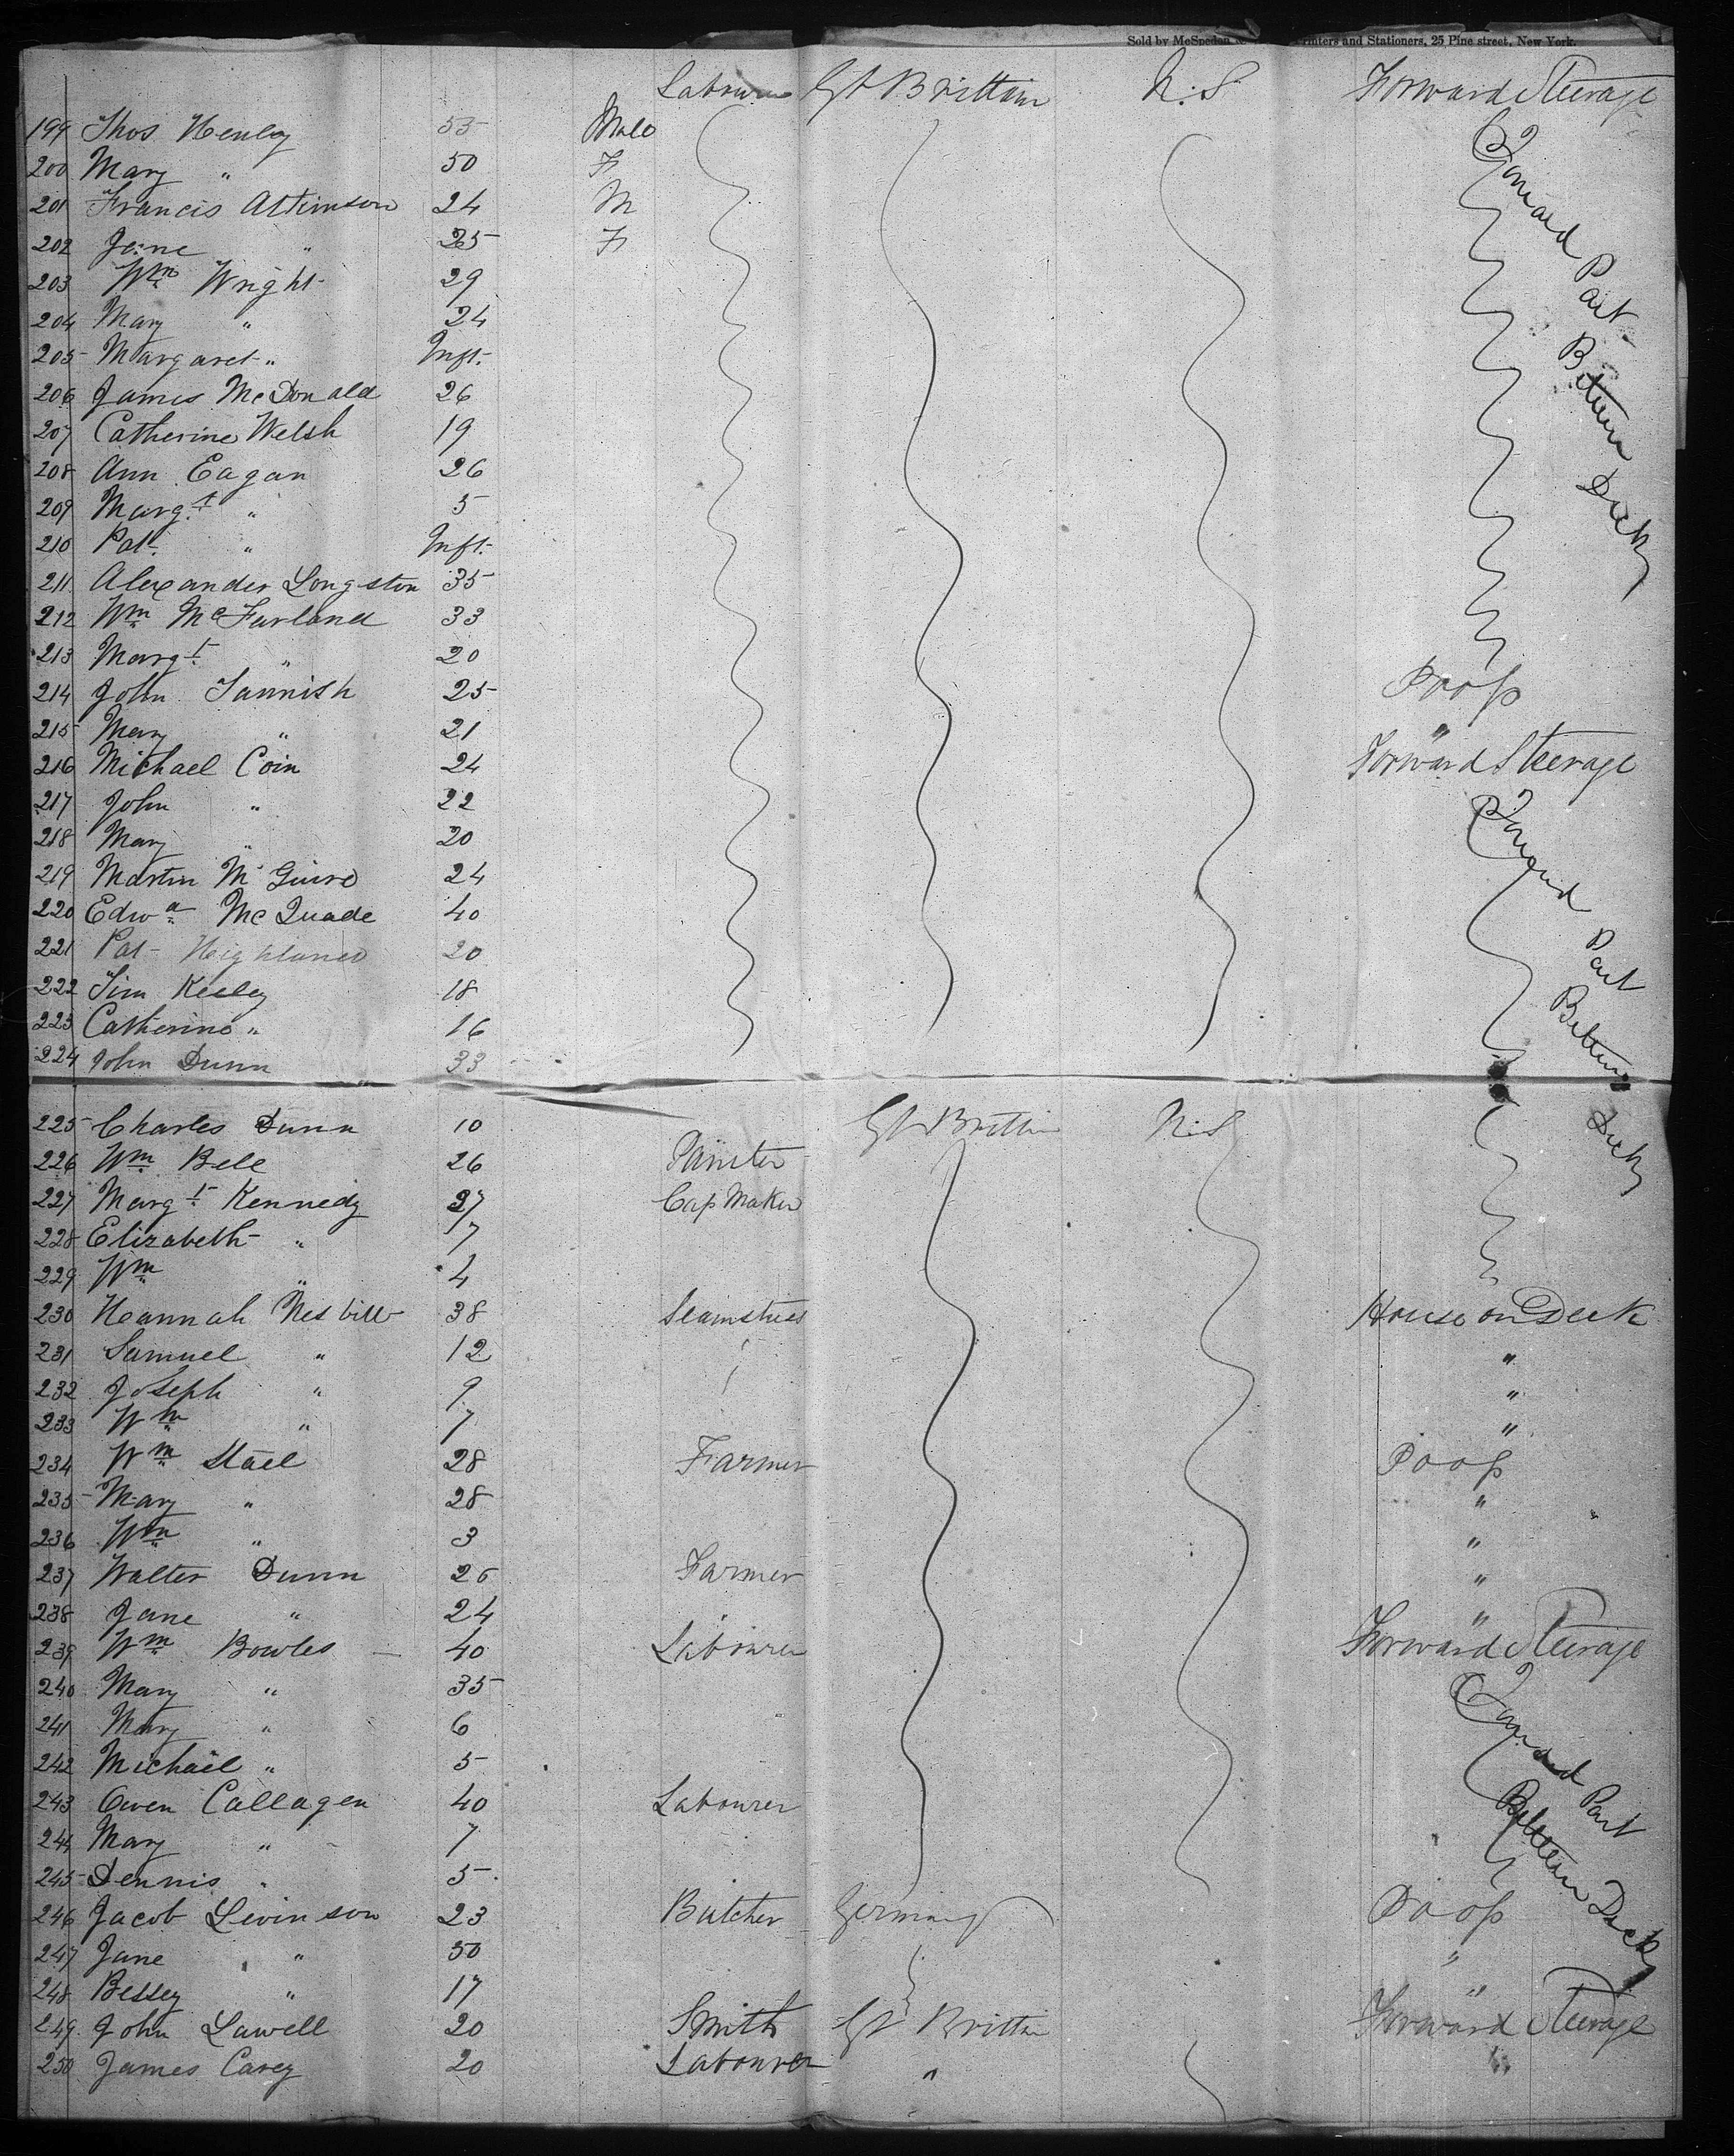 Sold by McSpedon & Printers and Stationers, 25 Pine street, New York.
Labourer Gt Brittain N.S Forward Steerage
199 Thos Henley 55 Male
200 Mary " 50 F
201 Francis Attkinson 24 M
202 Jane " 25 F
203 Wm Wright 29
204 Mary " 24
205 Margaret " Inft.
206 James McDonald 26
207 Catherine Welsh 19
208 Ann Eagan 26
209 Margt " 5
210 Pat. " Inft.
Forward Part Between Decks
211 Alexander Longston 35
212 Wm McFarland 33
213 Margt " 20
214 John Tannish 25 Poop
215 Mary " 21 "
216 Michael Coin 24 Forward Steerage
217 John " 22
218 Mary " 20
219 Martin McGuire 24
220 Edwd McQuade 40
221 Pat Highland 20
222 Tim Keeley 18
223 Catherine " 16
224 John Dunn 33
Forward Part Between Decks
225 Charles Dunn 10 Gt Brittain N.S
226 Wm Bell 26 Painter
227 Margt Kennedy 27 Cap Maker
228 Elizabeth " 7
229 Wm " 4
230 Hannah Nesbitt 38 Seamstress House on Deck
231 Samuel " 12 "
232 Joseph " 9 "
233 Wm " 7 "
234 Wm Stael 28 Farmer Poop
235 Mary " 28 "
236 Wm " 3 "
237 Walter Dunn 26 Farmer "
238 Jane " 24 "
239 Wm Bowles 40 Labourer Forward Steerage
240 Mary " 35
241 Mary " 6
242 Michael " 5
243 Owen Callagen 40 Labourer
244 Mary " 7
245 Dennis " 5
Forward Part Between Decks
246 Jacob Levinson 23 Butcher Germany Poop
247 Jane " 50 "
248 Bessey " 17 "
249 John Lawell 20 Smith Gt Brittain Forward Steerage
250 James Carey 20 Labourer " "